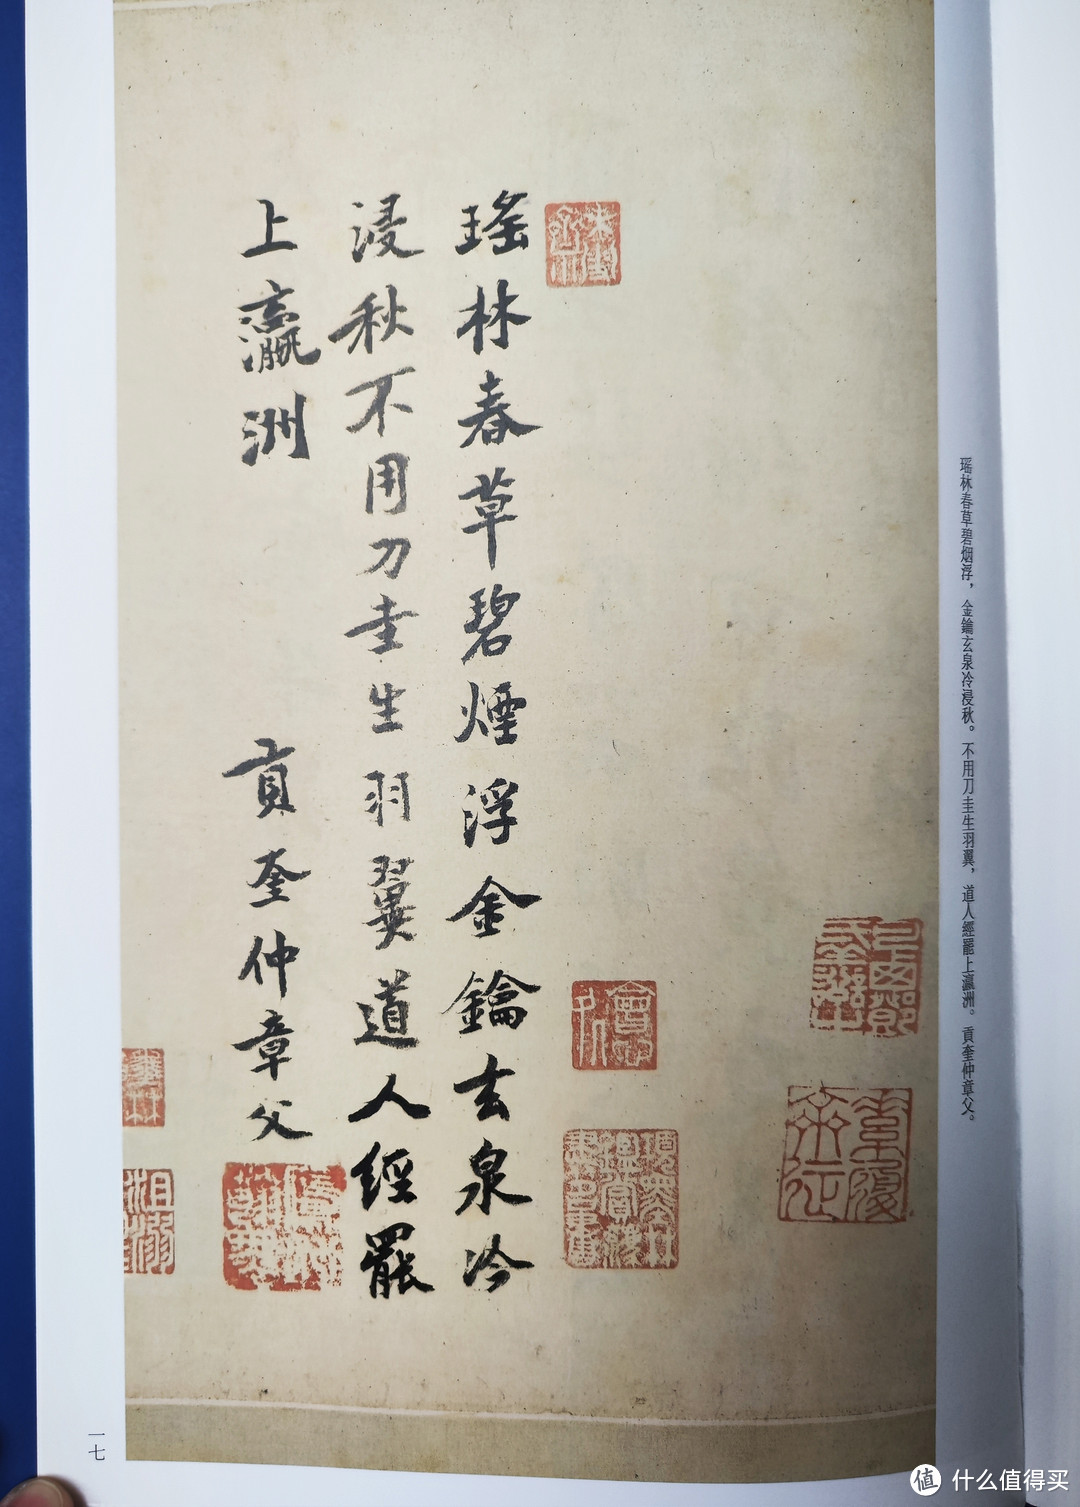 瑤林春草碧煙浮金鑰玄泉冷
浸秋不用刀圭生羽翼道人經罷
上瀛洲 貢奎仲章父
瑶林春草碧烟浮，金鑰玄泉冷浸秋。不用刀圭生羽翼，道人經罷上瀛洲。貢奎仲章父。
一七
值 什么值得买